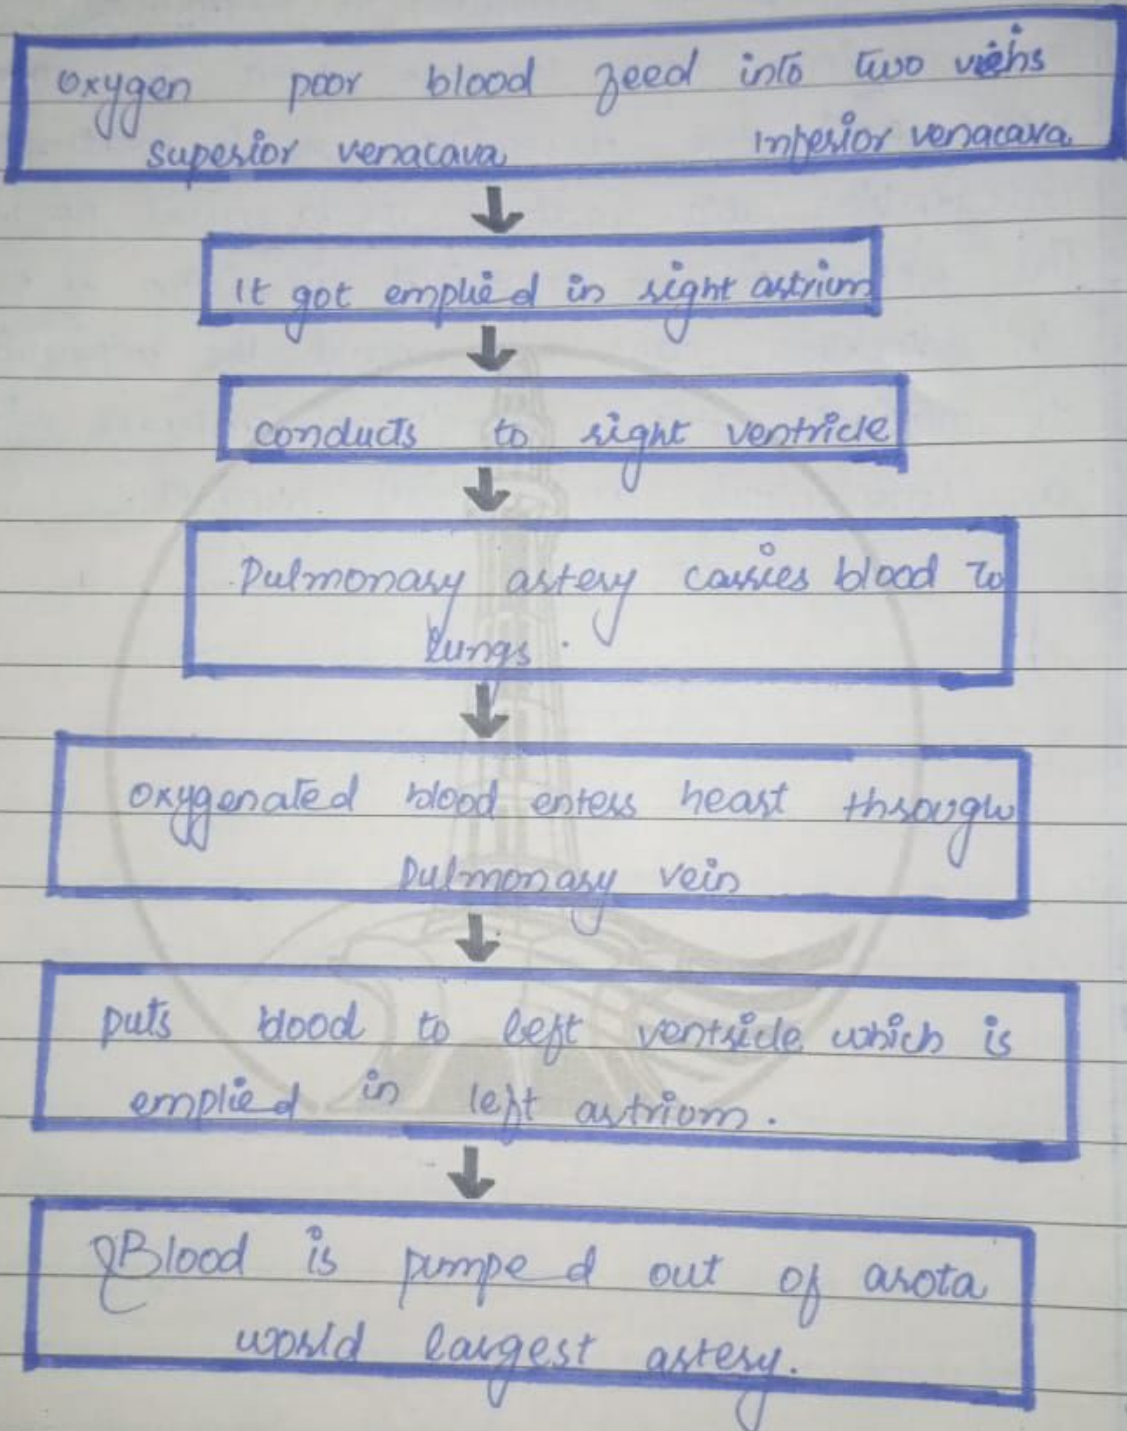 oxygen poor blood feed into two viehs
superior venacava inferior venacava
It got emplied in right astrium
conducts to right ventricle
Pulmonary artery carries blood to
lungs.
oxygenated blood enters heart through
pulmonary vein
puts blood to left ventricle which is
emplied in left astriom.
Blood is pumped out of arota
world largest artery.